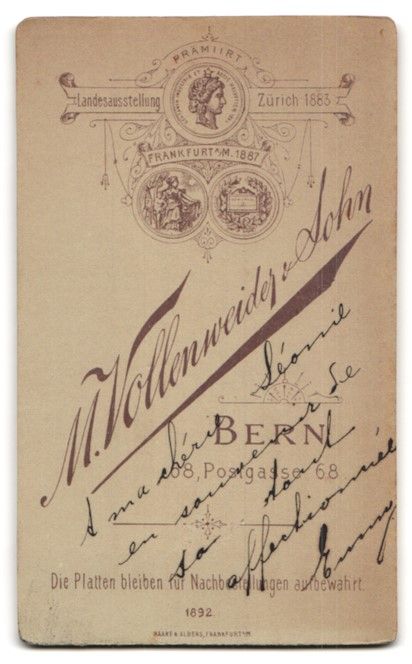 PRÄMIIRT
Landesausstellung Zürich 1883
FRANKFURT a/M. 1887
M. Vollenweider & Sohn
BERN
68, Postgasse 68
A ma chérie Léonie
en souvenir de
sa tant
affectionnée
Emmy
Die Platten bleiben für Nachbestellungen aufbewahrt.
1892
HAAKE & ALBERS, FRANKFURT a/M.